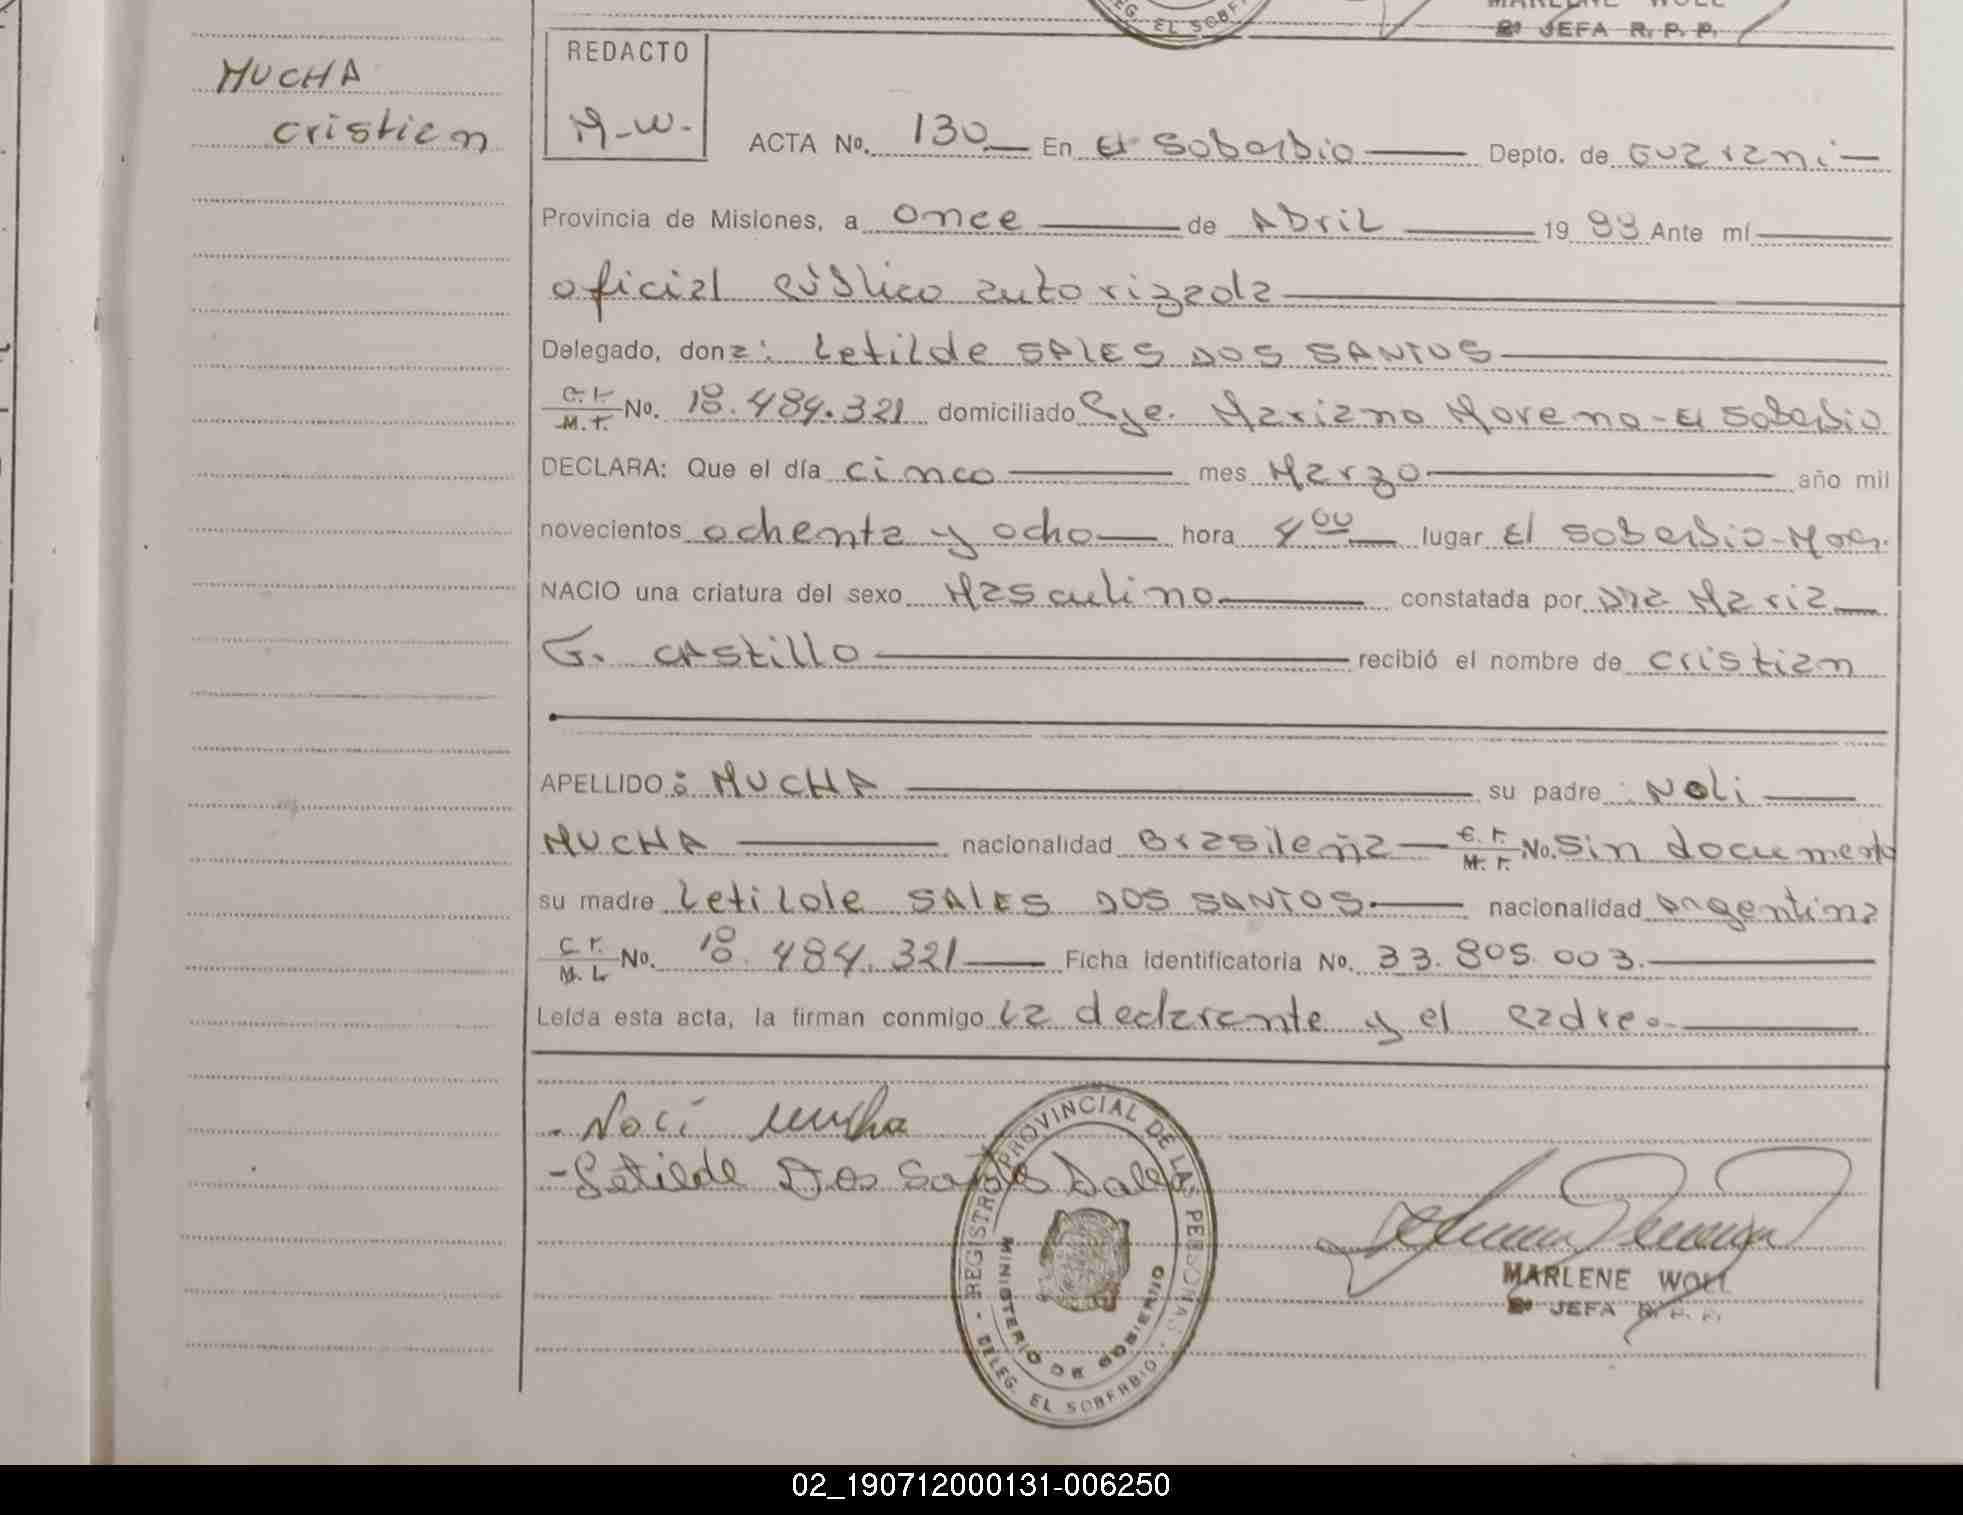 MARLENE WOLL
2º JEFA R. P. P.
EG. EL SOBE
MUCHA
cristian
REDACTO
M-W-
ACTA Nº. 130 En El Soberbio Depto. de Guarani
Provincia de Misiones, a once de Abril 19 Ante mí
oficial público autorizada
Delegado, dona: Letilde SALES DOS SANTOS
Nº. 18.484.321 domiciliado Pje. Mariano Moreno - El Soberbio
DECLARA: Que el día cinco mes Marzo año mil
novecientos ochenta y ocho hora 4 00 lugar El Soberbio-
NACIO una criatura del sexo Masculino constatada por Dra Maria
G. CAStillo recibió el nombre de cristian
APELLIDO: MUCHA su padre: Noli
MUCHA nacionalidad Brasileña Nº. Sin documento
su madre Letilde SALES DOS SANTOS nacionalidad argentina
Nº. 18.484.321 Ficha identificatoria Nº. 33.805.003.
Leída esta acta, la firman conmigo la declarante y el padre.
- Noci Mucha
- Letilde Dos Santos Sales
REGISTRO PROVINCIAL DE LAS PERSONAS
MINISTERIO DE GOBIERNO
- DELEG. EL SOBERBIO -
MARLENE WOLL
2º JEFA R. P. P.
02_190712000131-006250